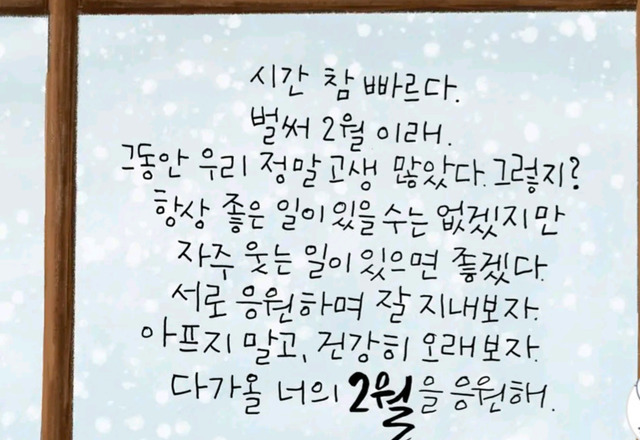 시간 참 빠르다.
벌써 2월 이래.
그동안 우리 정말 고생 많았다. 그렇지?
항상 좋은 일이 있을 수는 없겠지만
자주 웃는 일이 있으면 좋겠다.
서로 응원하며 잘 지내보자.
아프지 말고, 건강히 오래보자.
다가올 너의 2월을 응원해.